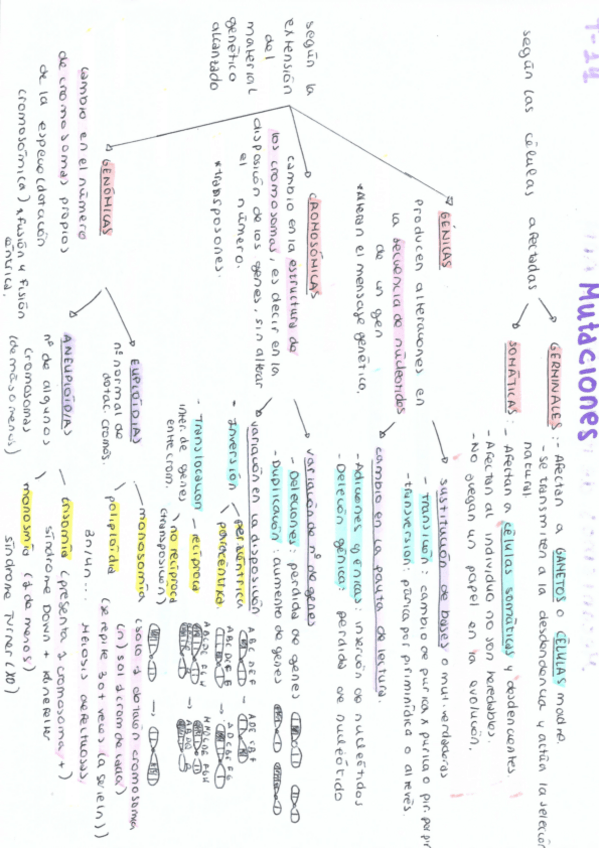 T-14
Mutaciones
según las células afectadas
GERMINALES: - Afectan a GAMETOS o CÉLULAS madre.
- Se transmiten a la descendencia y actúa la selección
natural
SOMÁTICAS: - Afectan a células somáticas y descendientes.
- Afectan al individuo no son heredables.
- No juegan un papel en la evolución.
según la
extensión
del
material
genético
alcanzado
GÉNICAS
producen alteraciones en
la secuencia de nucleótidos
de un gen
*Alteran el mensaje genético.
sustitución de bases o mut. verdaderas
- transición: cambio de purica x purica o pir. por pir
- transversión: púrica por pirimidínica o alrevés.
cambio en la pauta de lectura.
- Adiciones génicas: inserción de nucleótidos
- Deleción génica: perdida de nucleótido
CROMOSÓMICAS
cambio en la estructura de
los cromosomas, es decir en la
disposición de los genes, sin alterar
el número.
*transposones.
variación de nº de genes
- Deleciones: perdida de genes
- Duplicación: aumento de genes
variación en la disposición
- Inversión
pericéntrica
paracéntrica
- Translocación
inter. de genes
entre crom.
recíproca
no recíproca
(transposición)
GENÓMICAS
cambio en el número
de cromosomas propios
de la especie (dotación
cromosómica) *fusión y fisión
céntrica.
EUPLOIDÍAS
nº normal de
dotac. cromos.
monosomía (solo 1 dotación cromosómica
(n) sol 1 crom de cada)
poliploidía (se repite 3 o + veces (la serie n))
3n/4n... Meiosis defectuosas.
ANEUPLOIDÍAS
nº de algunos
cromosomas
(de más o menos)
trisomía (presenta 1 cromosoma +)
síndrome Down + klinefelter
monosmía (1 de menos)
síndrome Turner (X0)